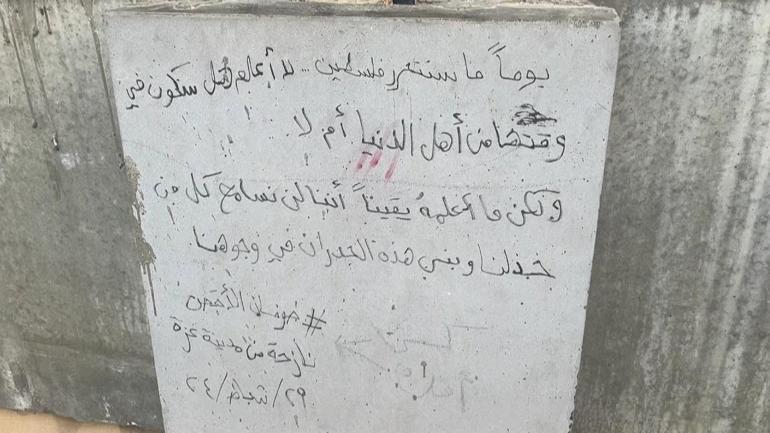 يوماً ما ستتحرر فلسطين... لا أعلم هل سنكون في
وقتها من أهل الدنيا أم لا
ولكن ما أعلمهُ يقيناً أننا لن نسامح كل من
خذلنا وبنى هذه الجدران في وجوهنا
نازحة من مدينة غزة